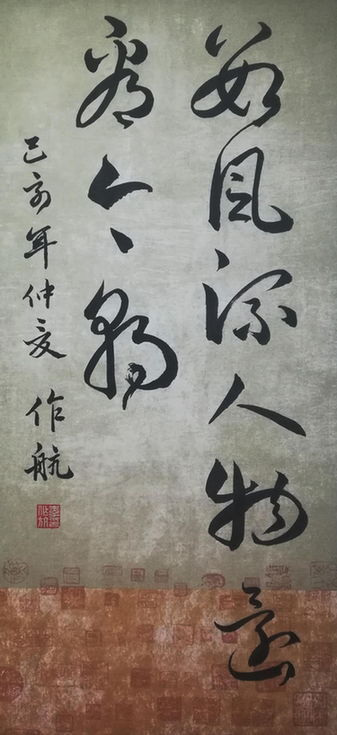 数风流人物还
看今朝
己亥年仲夏 作航